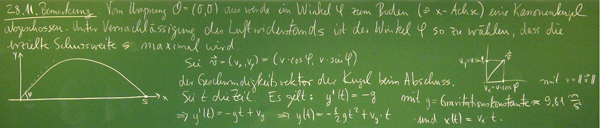 23.11. Bemerkung: Vom Ursprung O = (0,0) aus werde im Winkel φ zum Boden (≙ x-Achse) eine Kanonenkugel
abgeschossen. Unter Vernachlässigung des Luftwiderstands ist der Winkel φ so zu wählen, dass die
erzielte Schussweite s maximal wird.
Sei v⃗ = (vₓ, vᵧ) = (v·cos φ, v·sin φ)
der Geschwindigkeitsvektor der Kugel beim Abschuss. mit v = ‖v⃗‖
Sei t die Zeit. Es gilt: y''(t) = -g mit g = Gravitationskonstante ≈ 9,81 m/s
⇒ y'(t) = -gt + vᵧ ⇒ y(t) = -½gt² + vᵧ·t und x(t) = vₓ·t.
y
φ
s
x
vᵧ = v·sin φ
v⃗
φ
vₓ = v·cos φ